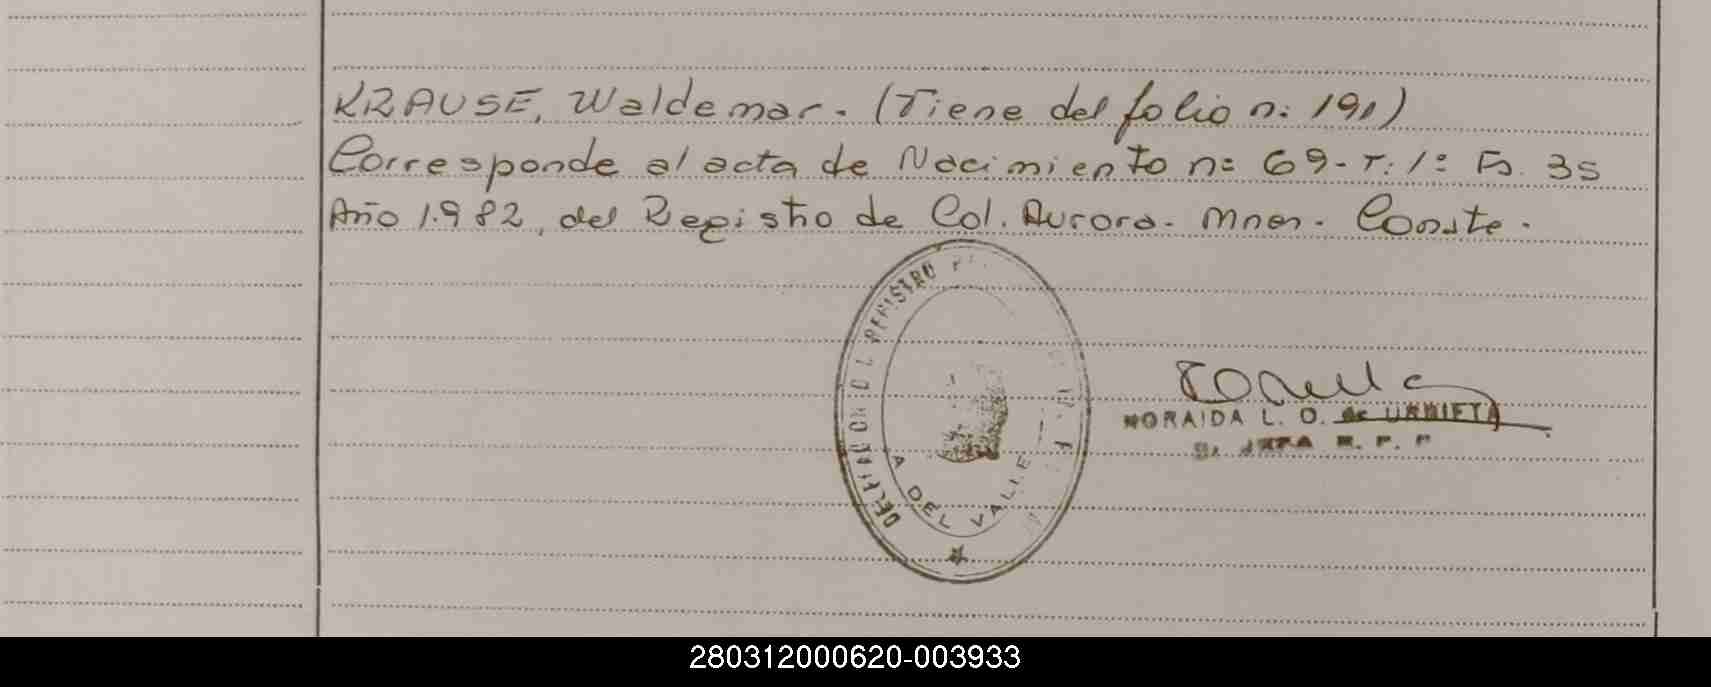 KRAUSE, Waldemar. (Tiene del folio n: 191)
Corresponde al acta de Nacimiento nº 69-T: 1: Fs. 35
Año 1.982, del Registro de Col. Aurora. Mnes. Conste.
DELEGACION DEL REGISTRO
A DEL VALLE
NORAIDA L. O. de URRIETA
JEFA R. P. P
280312000620-003933